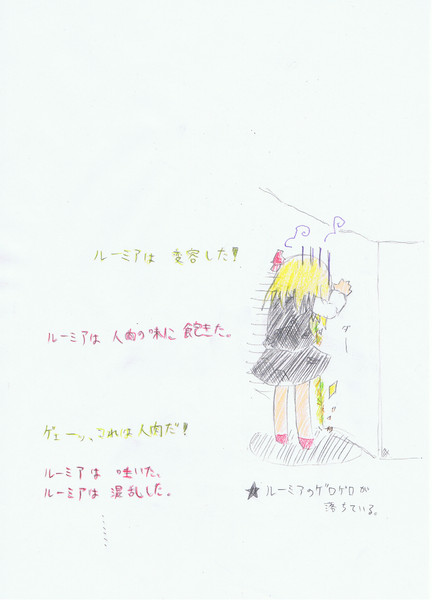 ルーミアは 変容した!!
ルーミアは 人肉の味に 飽きた。
ゲェーッ、これは人肉だ!
ルーミアは 吐いた。
ルーミアは 混乱した。
………
ゲー
★ルーミアのゲロゲロが
落ちている。